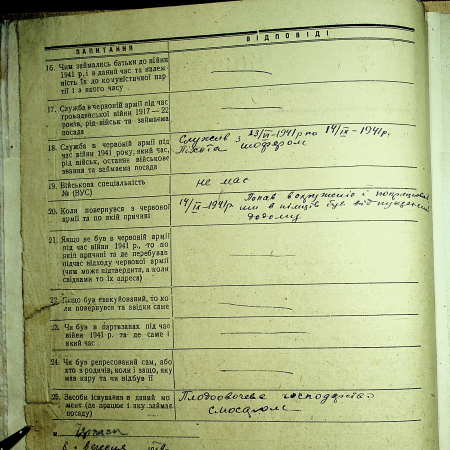 ЗАПИТАННЯ
ВІДПОВІДІ
16. Чим займались батьки до війни
1941 р. і в даний час та належ
ність їх до комуністичної пар
тії і з якого часу
17. Служба в червоній армії під час
громадянської війни 1917—22
років, рід військ та займаєма
посада
18. Служба в червоній армії під
час війни 1941 року, який час,
рід військ, останнє військове
звання та займаєма посада
Служив з 23/VI-1941 р по 14/IX-1941р.
Піхота шофером
19. Військова спеціальність
№ (ВУС)
не має
20. Коли повернувся з червоної
армії та по якій причині
14/IX-1941р. Попав в окружение і
ми в німців був відпущений
додому
21. Якщо не був в червоній армії
під час війни 1941 р., -то по
якій причині та де перебував
підчас відходу червоної армії
(чим може підтвердити, а коли
свідками то їх адреса)
22. Якщо був евакуйований, то ко
ли повернувся та звідки саме
23. Чи був в партизанах під час
війни 1941 р. та де саме і
який час
24. Чи був репресований сам, або
хто з родичів, коли і защо, яку
мав кару та чи відбув її
25. Засоби існування в даний мо
мент (де працює і яку займає
посаду)
Плодоовочеве господарство
слюсаром
м.
в.